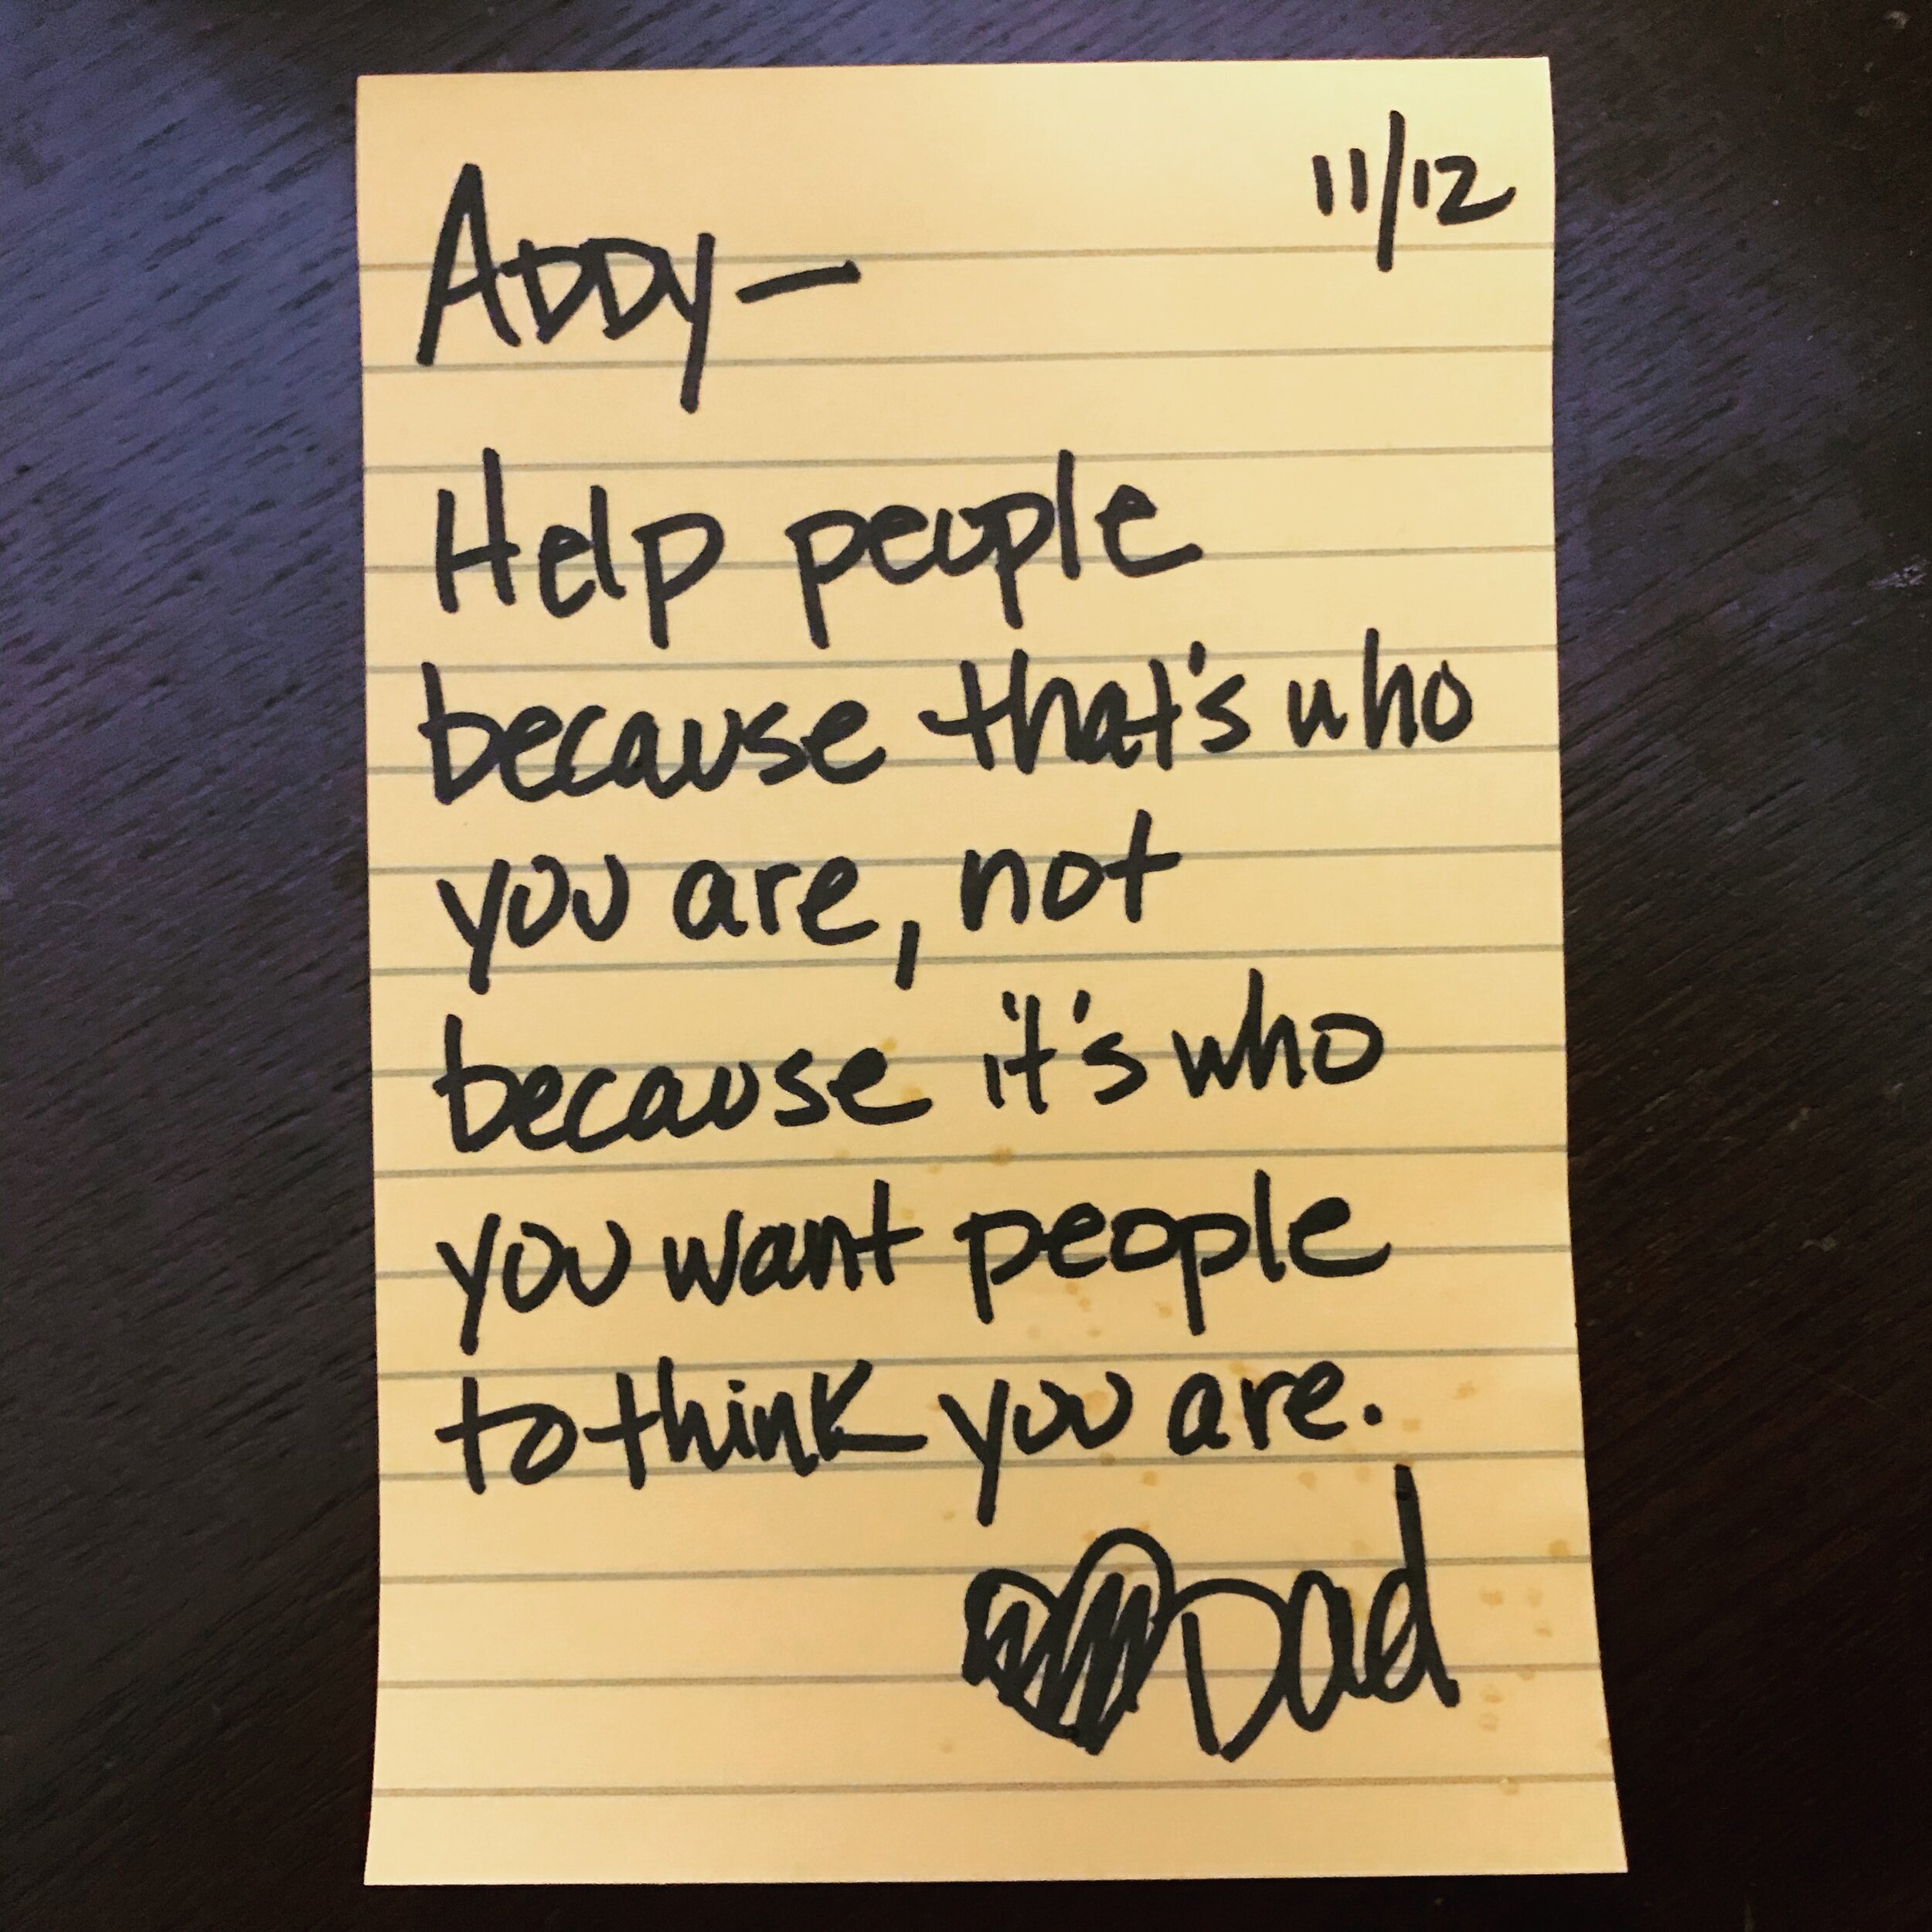 11/12
ADDy—
Help people
because that's who
you are, not
because it's who
you want people
to think you are.
Dad